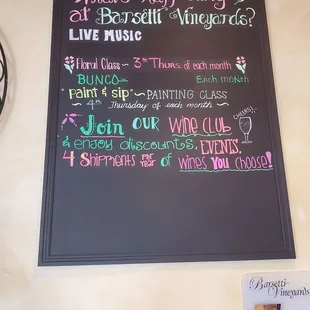 at Barsetti Vineyards?
LIVE MUSIC
Floral Class ~ 3rd Thurs of each month
BUNCO Each month
Paint & sip ~ PAINTING CLASS
~ 4th Thursday of each month ~
Join OUR WINE CLUB CHEERS!
& enjoy discounts, EVENTS,
4 Shipments PER YEAR of WINES YOU CHOOSE!
Barsetti
Vineyards